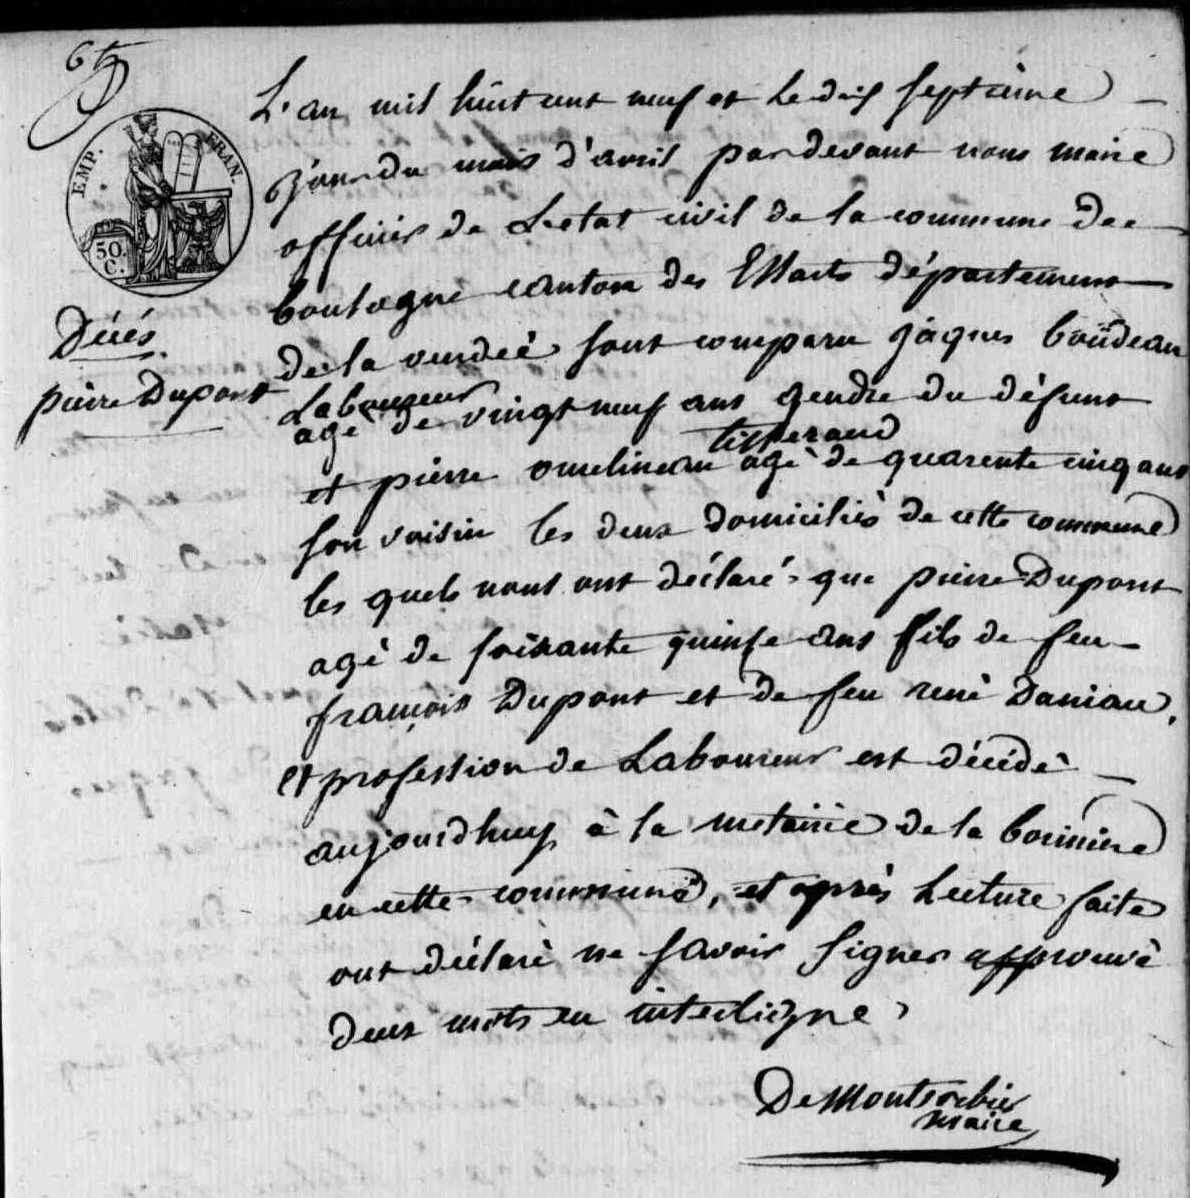 6e
EMP. FRAN.
50.
C.
Décés
pierre Dupont
L'an mil huit cent neuf et le dix septième
jour du mois d'avril par devant nous maire
officier de L'etat civil de la commune de
boulogne canton des Essarts département
de la vendeé sont comparu jâques boüdeau
Laboureur
agé de vingt neuf ans gendre du défunt
tisserand
et pierre omelineau agé de quarente cinq ans
son voisin les deux domiciliés de cette commune
les quels nous ont déclaré que pierre Dupont
agé de soixante quinse ans fils de feu
françois Dupont et de feu renè Daniau,
et profession de Laboureur est décédé
aujourdhuy à la metairie de la
en cette commune, et après Lecture faite
ont déclaré ne savoir signer approuvé
deux mots en interligne
De Montsorbier
maire